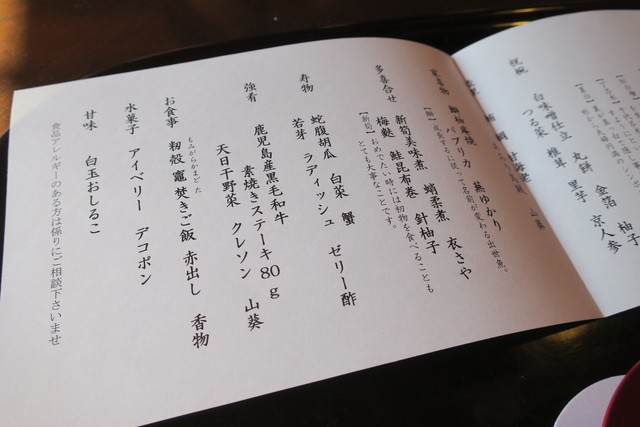 祝椀
白味噌仕立 丸餅 金箔 柚子
つる菜 椎茸 里芋 京人参
鰤柚庵焼 蕪ゆかり
パプリカ
【鰤】成長するに従って名前が変わる出世魚。
多喜合せ
新筍美味煮 蛸柔煮 衣さや
梅麩 鮭昆布巻 針柚子
【新筍】おめでたい時には初物を食べることも
とても大事なことです。
寿物
蛇腹胡瓜 白菜 蟹 ゼリー酢
若芽 ラディッシュ
強肴
鹿児島産黒毛和牛
素焼きステーキ80g
天日干野菜 クレソン 山葵
お食事
もみがらかまどた
籾殻竈焚きご飯 赤出し 香物
水菓子
アイベリー デコポン
甘味
白玉おしるこ
食品アレルギーのある方は係りにご相談下さいませ